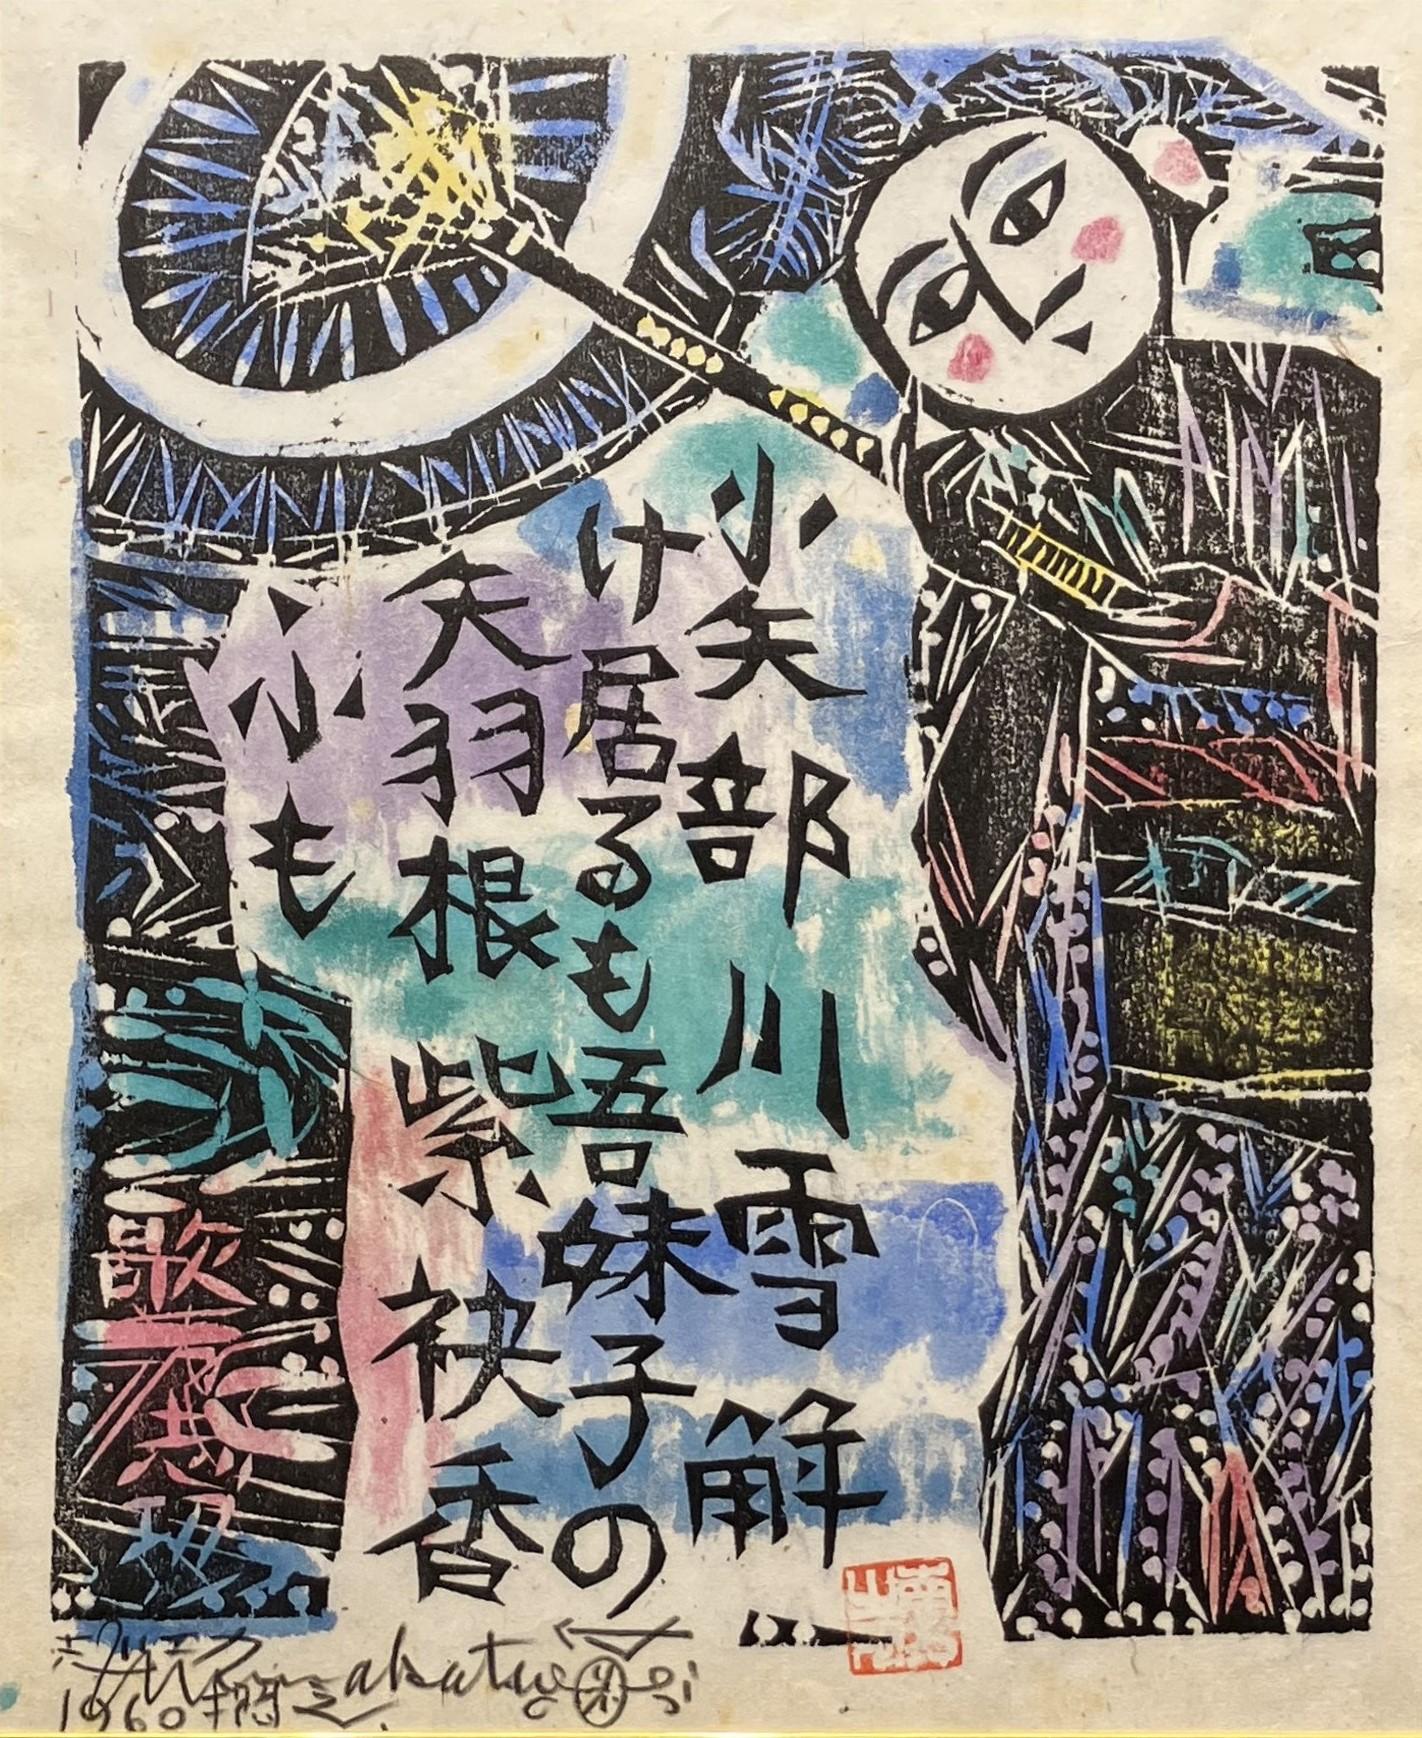 小矢部川雪解
け居るも吾妹子の
矢羽根紫袂香
ふも
歌
1960